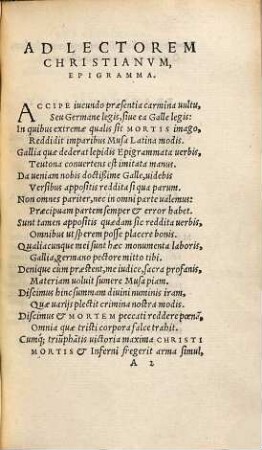 AD LECTOREM
CHRISTIANVM,
EPIGRAMMA.
ACCIPE iucundo præsentia carmina uultu,
Seu Germane legis, siue ea Galle legis:
In quibus extremæ qualis sit MORTIS imago,
Reddidit imparibus Musa Latina modis.
Gallia quæ dederat lepidis Epigrammata uerbis,
Teutona conuertens est imitata manus.
Da ueniam nobis doctißime Galle, uidebis
Versibus appositis reddita si qua parum.
Non omnes pariter, nec in omni parte ualemus:
Præcipuam partem semper & error habet.
Sunt tamen appositis quædam sic reddita uerbis,
Omnibus ut sperem posse placere bonis.
Qualiacunque mei sunt hæc monumenta laboris,
Gallia, germano pectore mitto tibi.
Denique cum præstent, me iudice, sacra profanis,
Materiam uoluit sumere Musa piam.
Discimus hinc summam diuini nominis iram,
Quæ uarijs plectit crimina nostra modis.
Discimus & MORTEM peccati reddere pœnā,
Omnia quæ tristi corpora falce trahit.
Cumq; triūphātis uictoria maxima CHRISTI
MORTIS & Inferni fregerit arma simul,
A 2